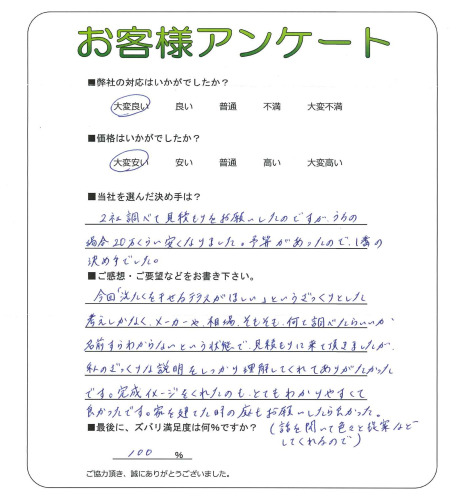 お客様アンケート
■弊社の対応はいかがでしたか？
大変良い　良い　普通　不満　大変不満
■価格はいかがでしたか？
大変安い　安い　普通　高い　大変高い
■当社を選んだ決め手は？
2社調べて見積もりをお願いしたのですが、うちの
場合20万くらい安くなりました。予算があったので、1番の
決め手でした。
■ご感想・ご要望などをお書き下さい。
今回「洗たくをほせるテラスがほしい」というざっくりとした
考えしかなく、メーカーや、相場、そもそも、何て調べたらいいか
名前すらわからないという状態で、見積もりに来て頂きましたが、
私のざっくりな説明をしっかり理解してくれてありがたかった
です。完成イメージをくれたのも、とてもわかりやすくて
良かったです。家を建てた時の庭もお願いしたら良かった。
（話を聞いて色々と提案など
してくれるので）
■最後に、ズバリ満足度は何％ですか？
100　％
ご協力頂き、誠にありがとうございました。